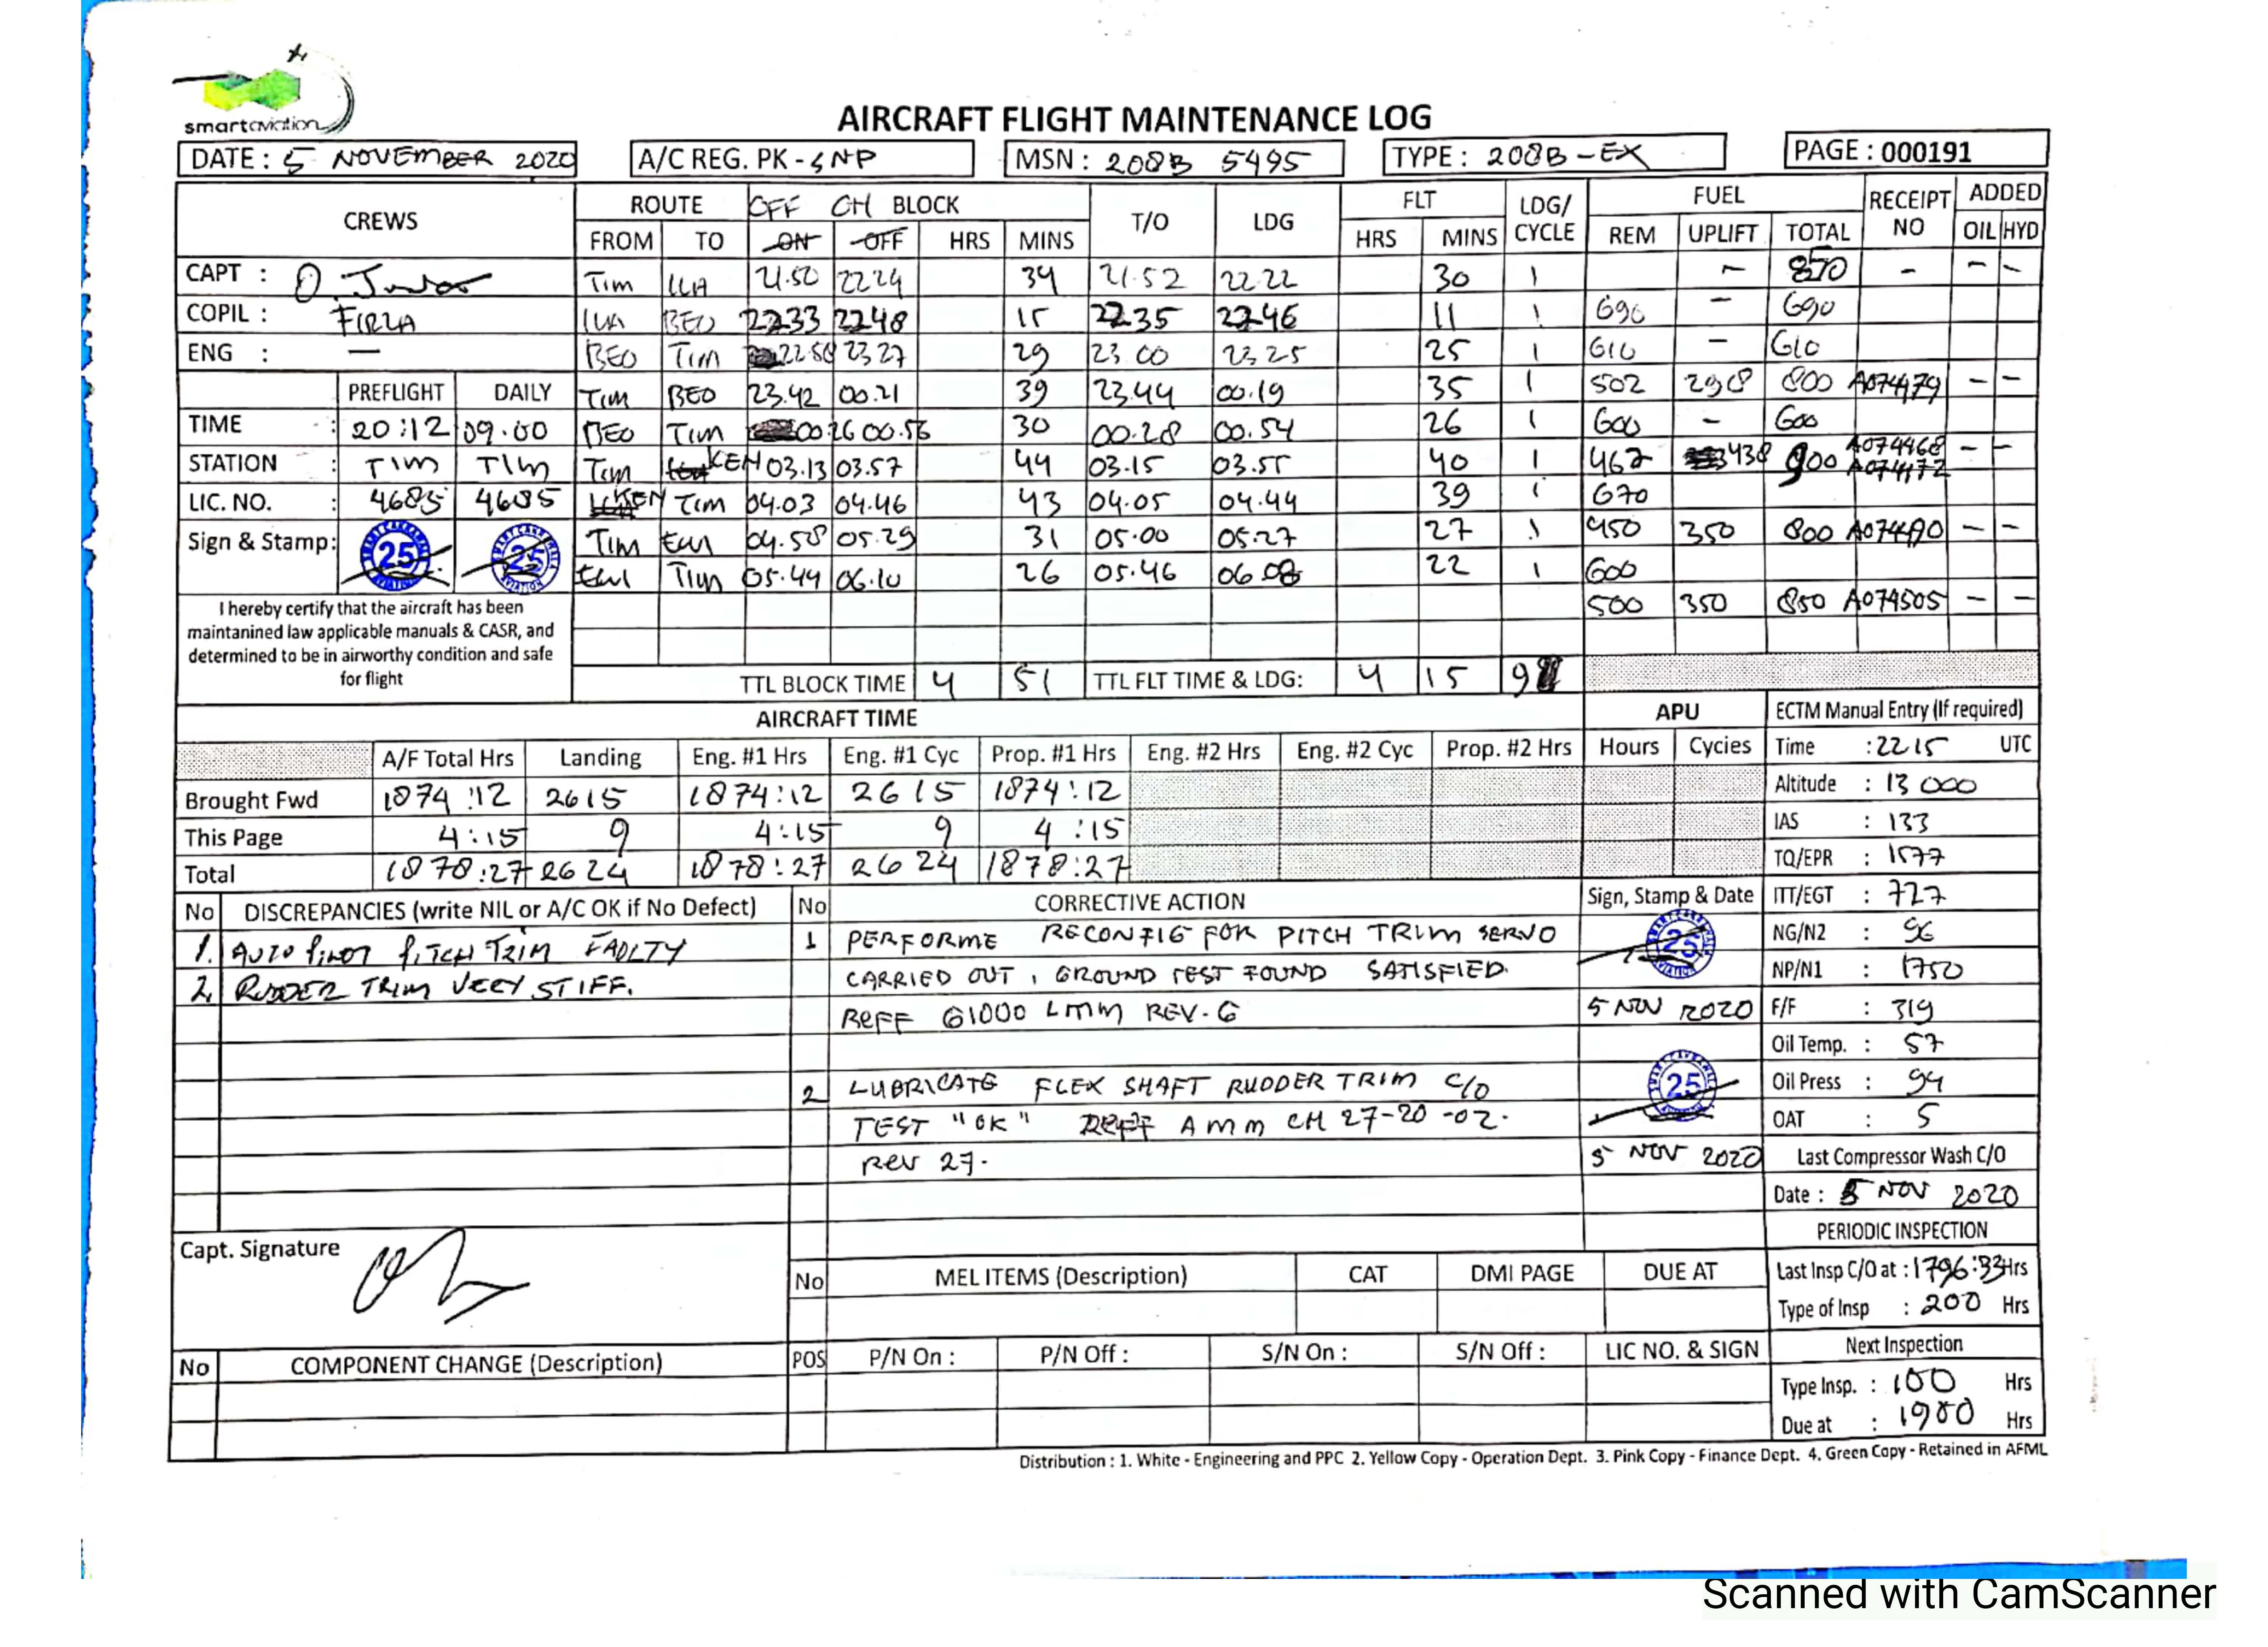 smartaviation
AIRCRAFT FLIGHT MAINTENANCE LOG
DATE : 5 NOVEMBER 2020 A/C REG. PK - SNP MSN : 208B 5495 TYPE : 208B-EX PAGE : 000191
CREWS ROUTE OFF ON BLOCK T/O LDG FLT LDG/ CYCLE FUEL RECEIPT NO ADDED
FROM TO ON OFF HRS MINS HRS MINS REM UPLIFT TOTAL OIL HYD
CAPT : Tim ILA 21.50 22 24 34 21.52 22.22 30 1 - 850 - - -
COPIL : FIRZA ILA BEO 2233 2248 15 2235 2246 11 1 690 - 690
ENG : — BEO Tim 22.58 23 27 29 23 00 23 25 25 1 610 - 610
PREFLIGHT DAILY Tim BEO 23.42 00.21 39 23.44 00.19 35 1 502 298 800 A074479 - -
TIME : 20:12 09.00 BEO Tim 00 26 00.56 30 00.28 00.54 26 1 600 - 600
STATION : TIM TIM Tim KEN 03.13 03.57 44 03.15 03.55 40 1 462 438 900 A074468 A074472 - -
LIC. NO. : 4685 4685 KEN Tim 04.03 04.46 43 04.05 04.44 39 1 670
Sign & Stamp: 25 25 Tim EWI 04.58 05.29 31 05.00 05.27 27 1 450 350 800 A074490 - -
EWI Tim 05.44 06.10 26 05.46 06 08 22 1 600
I hereby certify that the aircraft has been 500 350 850 A074505 - -
maintanined law applicable manuals & CASR, and
determined to be in airworthy condition and safe
for flight TTL BLOCK TIME 4 51 TTL FLT TIME & LDG: 4 15 9
AIRCRAFT TIME APU ECTM Manual Entry (If required)
A/F Total Hrs Landing Eng. #1 Hrs Eng. #1 Cyc Prop. #1 Hrs Eng. #2 Hrs Eng. #2 Cyc Prop. #2 Hrs Hours Cycles Time : 2215 UTC
Brought Fwd 1874 :12 2615 1874:12 2615 1874:12 Altitude : 13 000
This Page 4:15 9 4:15 9 4 :15 IAS : 133
Total 1878:27 2624 1878:27 2624 1878:27 TQ/EPR : 1577
No DISCREPANCIES (write NIL or A/C OK if No Defect) No CORRECTIVE ACTION Sign, Stamp & Date ITT/EGT : 727
1. AUTO PILOT PITCH TRIM FAULTY 1 PERFORME RECONFIG FOR PITCH TRIM SERVO 25 NG/N2 : 96
2. RUDDER TRIM VERY STIFF. CARRIED OUT , GROUND TEST FOUND SATISFIED. NP/N1 : 1750
REFF G1000 LMM REV. G 5 NOV 2020 F/F : 319
Oil Temp. : 57
2 LUBRICATE FLEX SHAFT RUDDER TRIM C/O 25 Oil Press : 94
TEST "OK" REFF AMM CH 27-20 -02. OAT : 5
REV 27. 5 NOV 2020 Last Compressor Wash C/O
Date : 5 NOV 2020
PERIODIC INSPECTION
Capt. Signature
No MEL ITEMS (Description) CAT DMI PAGE DUE AT Last Insp C/O at : 1796:33 Hrs
Type of Insp : 200 Hrs
No COMPONENT CHANGE (Description) POS P/N On : P/N Off : S/N On : S/N Off : LIC NO. & SIGN Next Inspection
Type Insp. : 100 Hrs
Due at : 1900 Hrs
Distribution : 1. White - Engineering and PPC 2. Yellow Copy - Operation Dept. 3. Pink Copy - Finance Dept. 4. Green Copy - Retained in AFML
Scanned with CamScanner